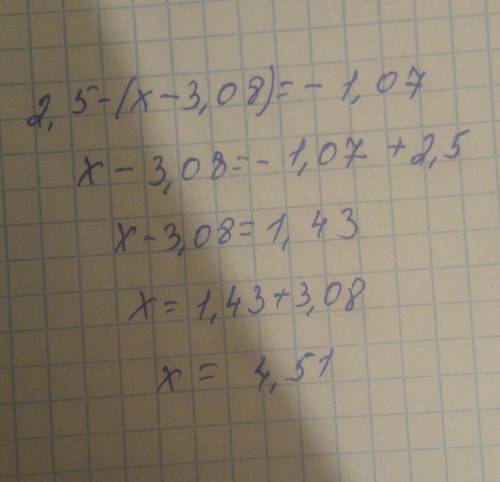 2,5-(x-3,08)=-1,07
x-3,08=-1,07+2,5
x-3,08=1,43
x=1,43+3,08
x= 4,51